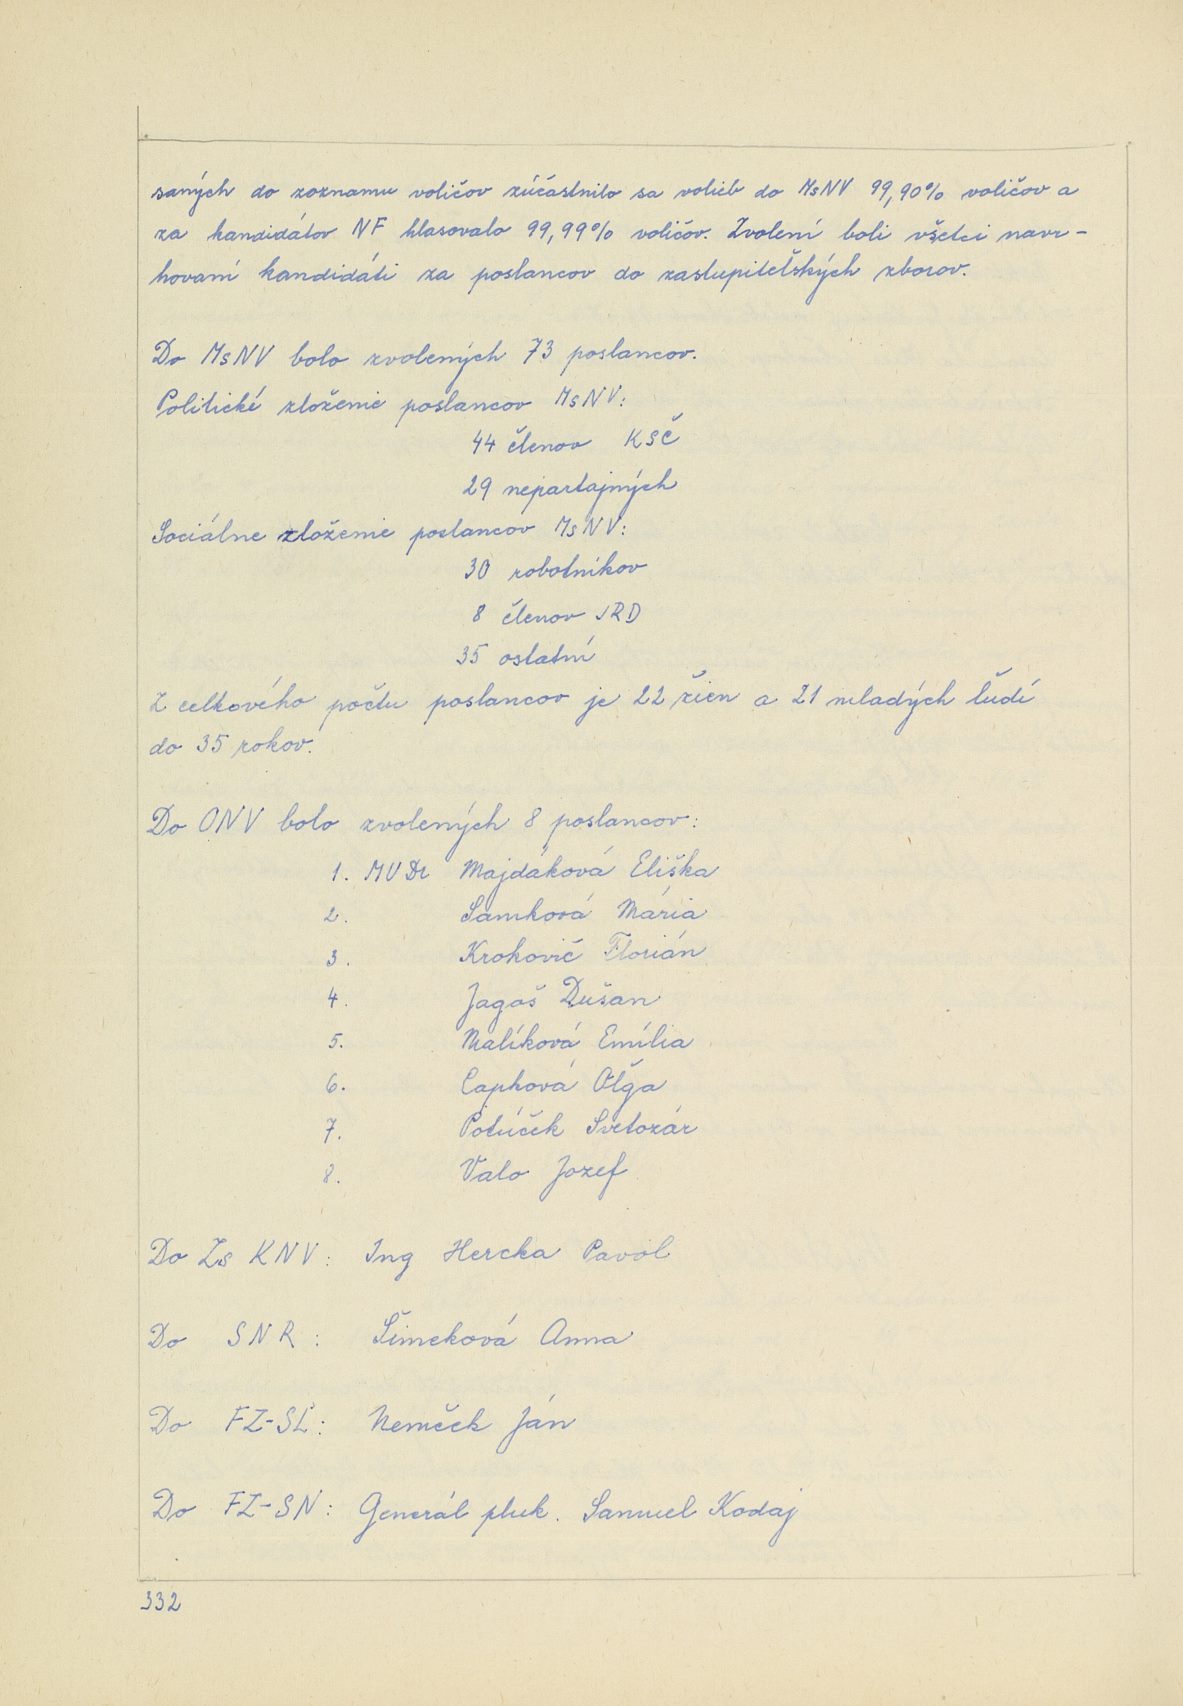 saných do zoznamu voličov zúčastnilo sa volieb do MsNV 99,90% voličov a
za kandidátov NF hlasovalo 99,99% voličov. Zvolení boli všetci navr-
hovaní kandidáti za poslancov do zastupiteľských zborov.
Do MsNV bolo zvolených 73 poslancov.
Politické zloženie poslancov MsNV:
44 členov KSČ
29 nepartajných
Sociálne zloženie poslancov MsNV:
30 robotníkov
8 členov JRD
35 ostatní
Z celkového počtu poslancov je 22 žien a 21 mladých ľudí
do 35 rokov.
Do ONV bolo zvolených 8 poslancov:
1. MVDr Majdáková Eliška
2. Samková Mária
3. Krokovič Florián
4. Jagoš Dušan
5. Malíková Emília
6. Capková Oľga
7. Potúček Svetozár
8. Valo Jozef
Do Zs KNV: Ing Hercka Pavol
Do SNR: Šimeková Anna
Do FZ-SĽ: Nemček Ján
Do FZ-SN: Generál pluk. Samuel Kodaj
332